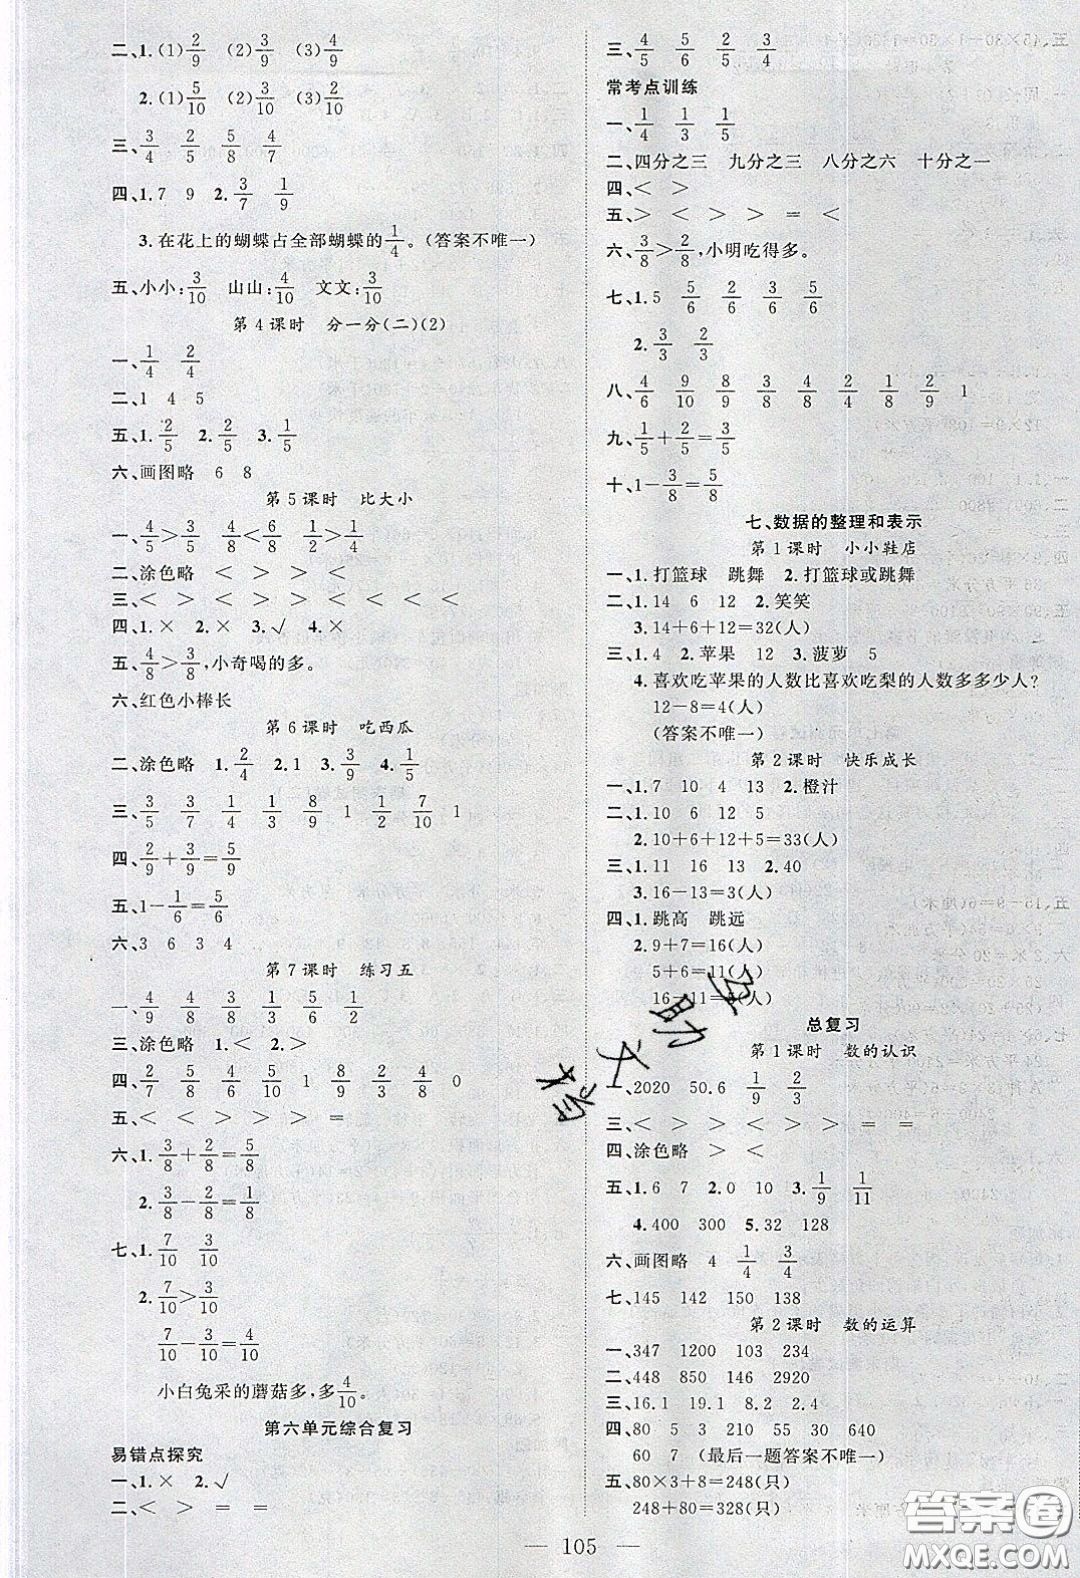 二、1.(1)2/9 (2)3/9 (3)4/9
2.(1)5/10 (2)3/10 (3)2/10
三、3/4 2/4 5/8 4/7
四、1.7 9 2.3/7 1/9
3.在花上的蝴蝶占全部蝴蝶的1/4。(答案不唯一)
五、小小:3/10 山山:4/10 文文:3/10
第4课时 分一分(二)(2)
一、1/4 2/4
二、1 4 5
五、1.2/5 2.2/5 3.1/5
六、画图略 6 8
第5课时 比大小
一、4/5>3/5 4/8<6/8 1/2>1/4
二、涂色略 < > < >
三、< < > > < < < < <
四、1.× 2.× 3.√ 4.×
五、4/8>3/8,小奇喝的多。
六、红色小棒长
第6课时 吃西瓜
二、涂色略 1.2/4 2.1 3.3/9 4.1/5
三、3/5 3/7 1/4 1/3 8/9 1 1/2 7/10 1
四、2/9+3/9=5/9
五、1-1/6=5/6
六、3 6 3 4
第7课时 练习五
一、4/9 4/8 3/8 1/3 5/6 1/8
三、涂色略 1.< 2.>
四、2/7 5/8 4/6 5/10 1 8/9 2/3 4/8 0
五、< < > < > > =
六、1.3/8+2/8=5/8
2.3/8-2/8=1/8
七、1.7/10 3/10
2.7/10>3/10
7/10-3/10=4/10
小白兔采的蘑菇多,多4/10。
第六单元综合复习
易错点探究
一、1.× 2.√
二、< > > = =
三、4/5 5/6 2/4 3/4
常考点训练
一、1/4 1/3 1/5
二、四分之三 九分之三 八分之六 十分之一
四、< >
五、> < > > = <
六、3/8>2/8,小明吃得多。
七、1.5 5/6 5/6 1/6
2.3/3 2/3
八、4/6 9/10 8/9 3/8 4/8 1/8 2/9 1
九、1/5+2/5=3/5
十、1-3/8=5/8
七、数据的整理和表示
第1课时 小小鞋店
一、1.打篮球 跳舞 2.打篮球或跳舞
二、1.14 6 12 2.笑笑
3.14+6+12=32(人)
三、1.4 2.苹果 12 3.菠萝 5
4.喜欢吃苹果的人数比喜欢吃梨的人数多多少人?
12-8=4(人)
(答案不唯一)
第2课时 快乐成长
一、1.7 10 4 13 2.橙汁
二、1.10 6 12 5
2.10+6+12+5=33(人)
三、1.11 16 13 2.40
3.16-13=3(人)
四、1.跳高 跳远
2.9+7=16(人)
5+6=11(人)
16-11=5(人)
总复习
第1课时 数的认识
一、2020 50.6 1/9 2/3
三、< > < > > = =
四、涂色略 > <
五、1.6 7 2.0 10 3.1/9 1/11
4.400 300 5.32 128
六、画图略 4 1/4 3/4
七、145 142 150 138
第2课时 数的运算
一、347 1200 103 234
二、448 850 146 2920
三、16.1 19.1 8.2 2.4
四、80 5 3 210 55 30 640
60 7 (最后一题答案不唯一)
五、80×3+8=248(只)
248+80=328(只)
105
答案圈
MXQE.COM